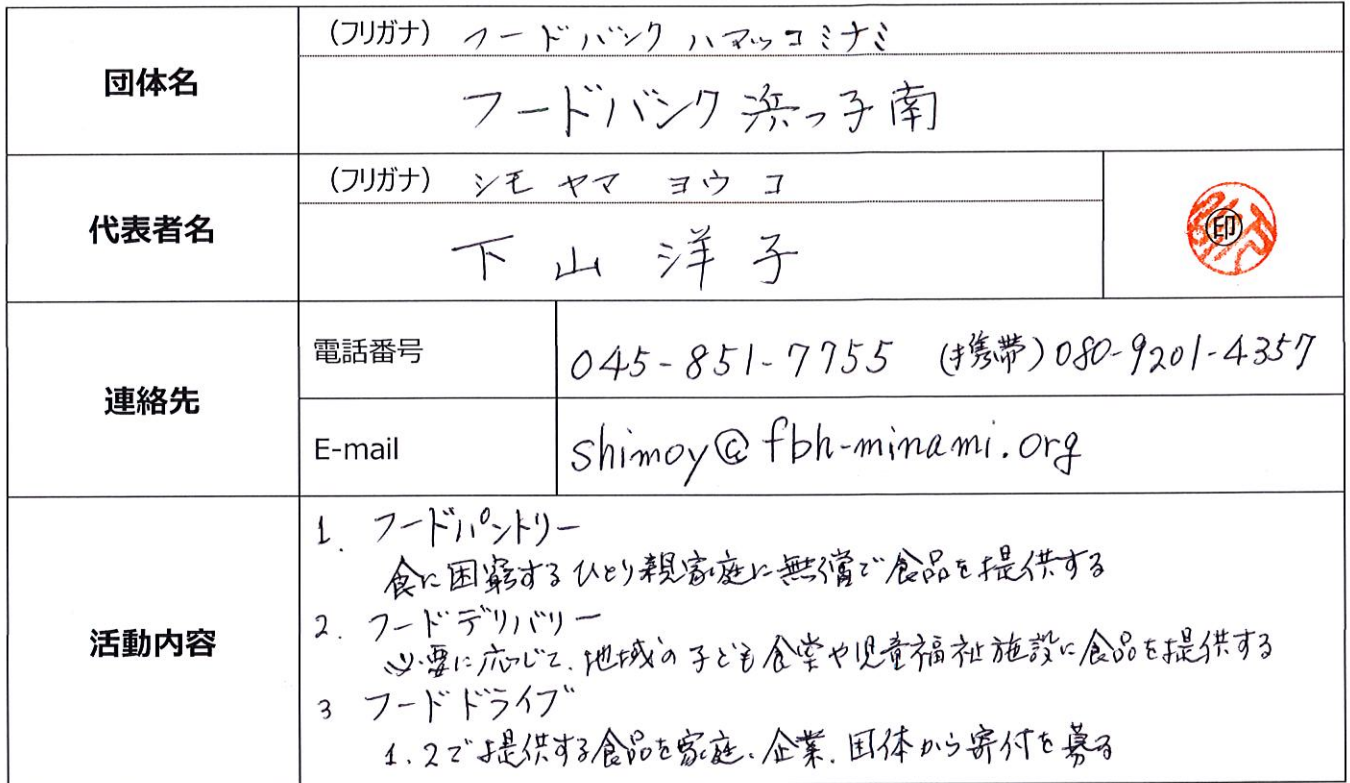 団体名
(フリガナ) フードバンクハマッコミナミ
フードバンク浜っ子南
代表者名
(フリガナ) シモヤマ ヨウコ
下山 洋子
印
連絡先
電話番号 045-851-7755 (携帯)080-9201-4357
E-mail shimoy@fbh-minami.org
活動内容
1. フードパントリー
食に困窮するひとり親家庭に無償で食品を提供する
2. フードデリバリー
必要に応じて、地域の子ども食堂や児童福祉施設に食品を提供する
3 フードドライブ
1、2で提供する食品を家庭、企業、団体から寄付を募る